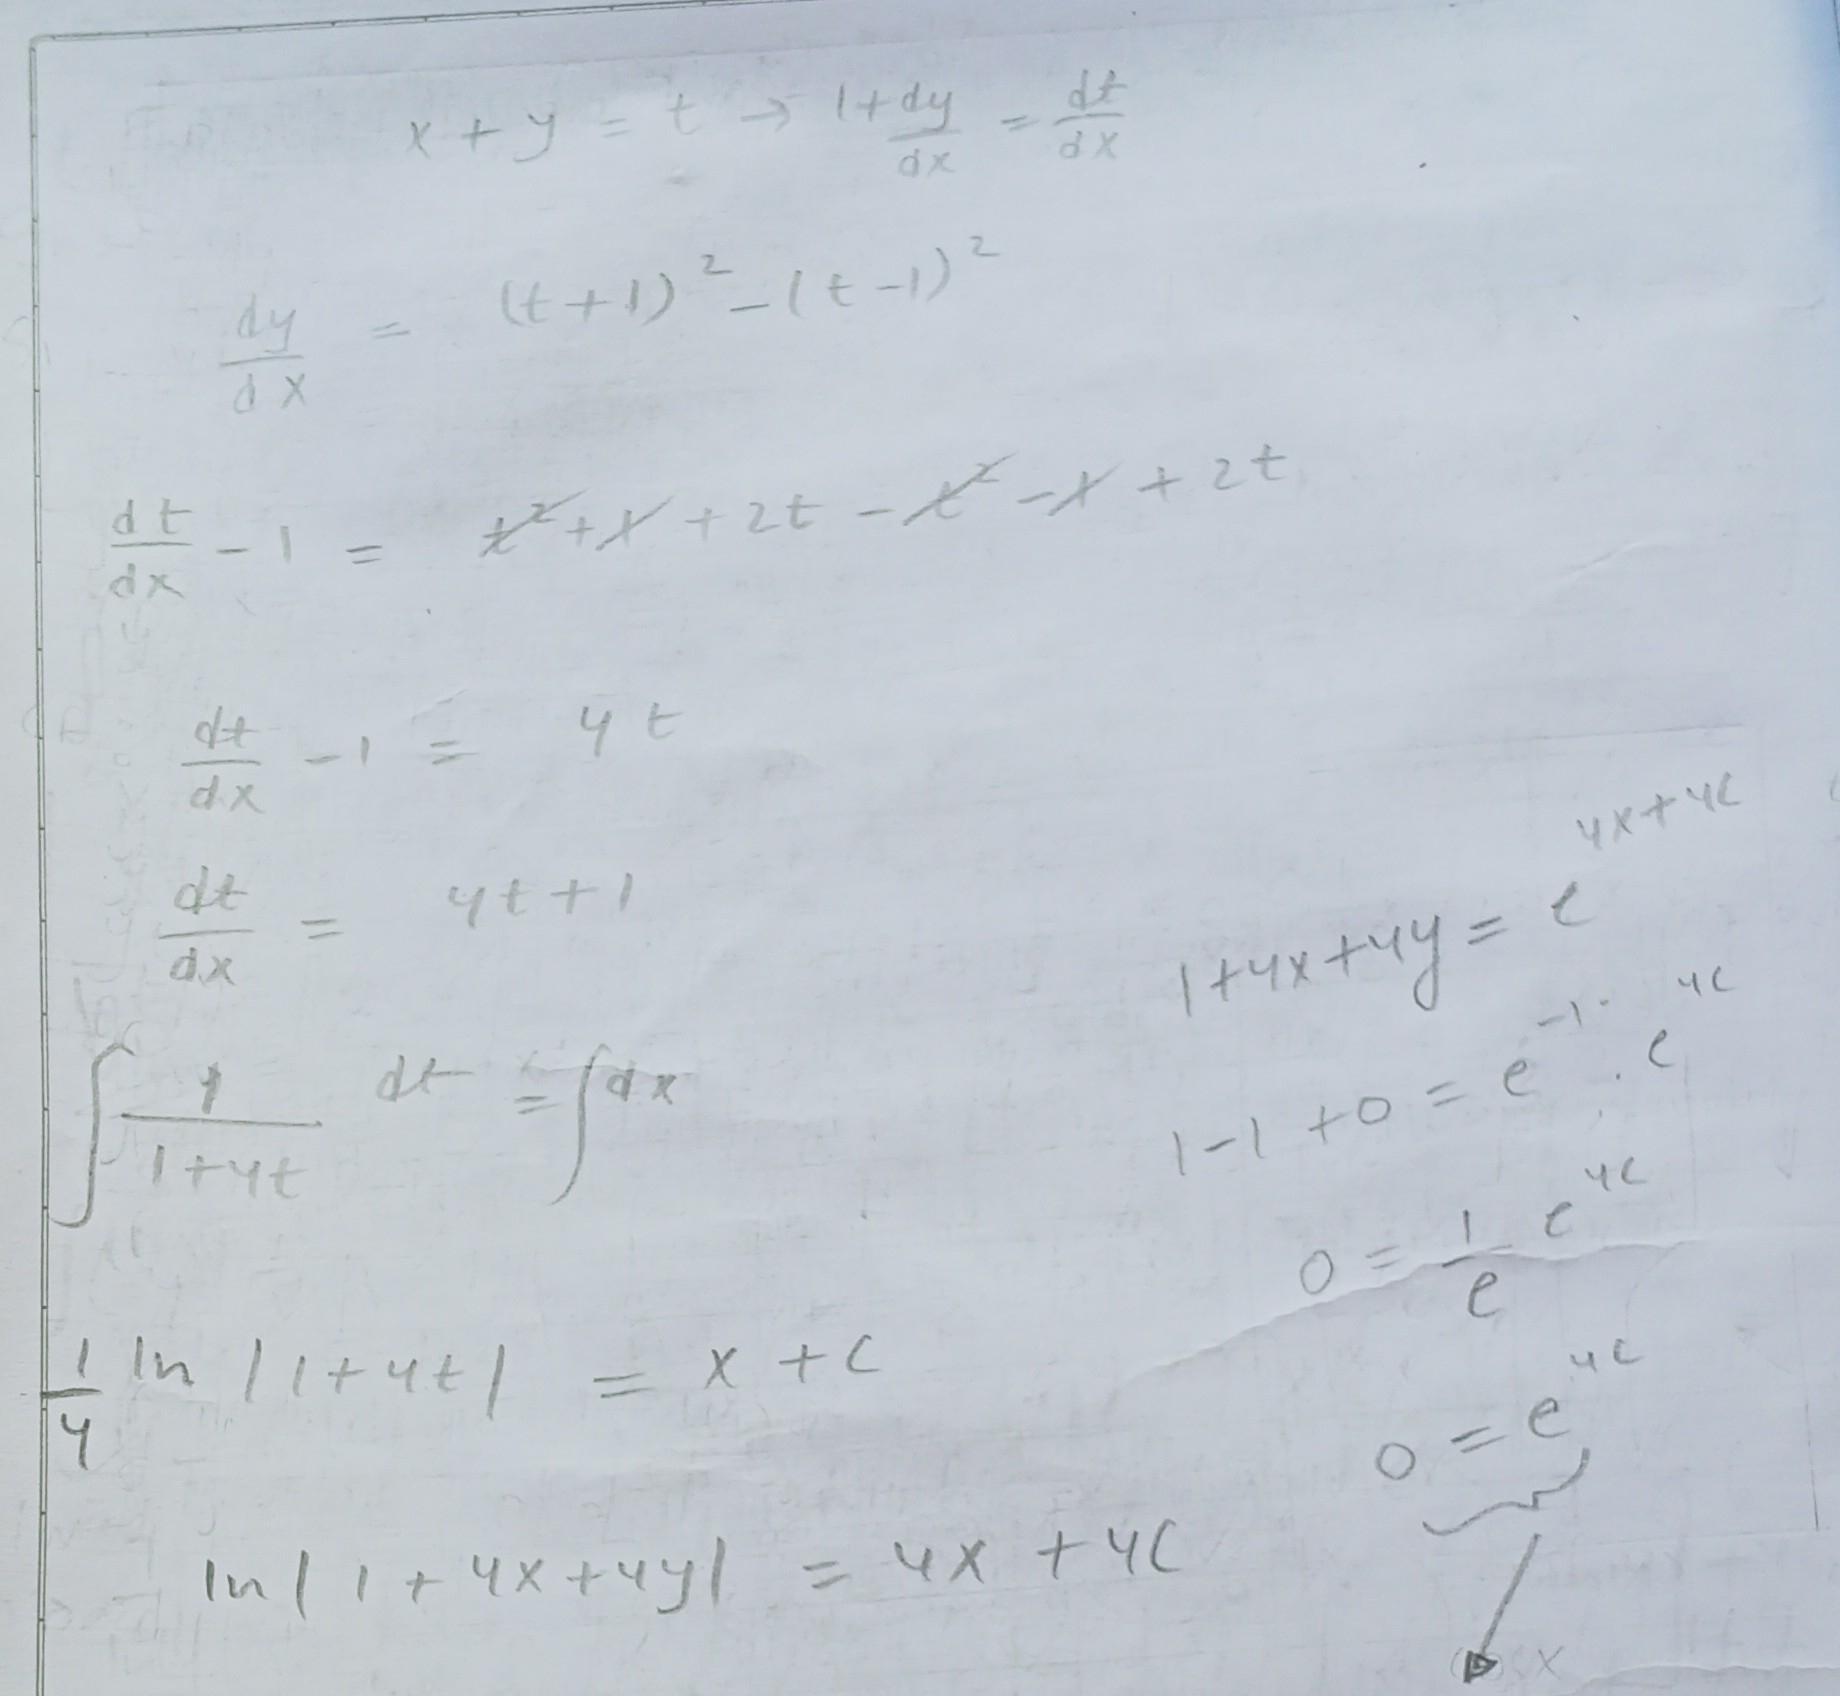 x + y = t → 1 + dy/dx = dt/dx
dy/dx = (t+1)² - (t-1)²
dt/dx - 1 = t² + 1 + 2t - t² - 1 + 2t
dt/dx - 1 = 4t
dt/dx = 4t + 1
∫ 1/(1+4t) dt = ∫ dx
1/4 ln |1+4t| = x + c
ln | 1 + 4x + 4y | = 4x + 4c
1 + 4x + 4y = e^(4x+4c)
1 - 1 + 0 = e^(-1) . e^(4c)
0 = 1/e e^(4c)
0 = e^(4c)